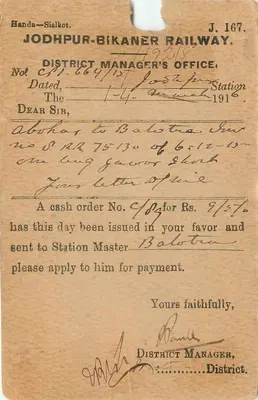 Handa—Sialkot.
J. 167.
JODHPUR-BIKANER RAILWAY.
DISTRICT MANAGER'S OFFICE,
No.
Dated, Jodhpur Station
The 1-4- 1916
DEAR SIR,
Abohar to Balotra Inv
no 8 RR 75130 of 6-12-15
one bag Short
Your letter
A cash order No. for Rs. 9/5/0
has this day been issued in your favor and
sent to Station Master Balotra
please apply to him for payment.
Yours faithfully,
DISTRICT MANAGER,
District.